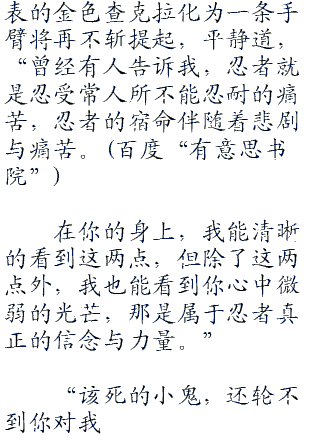 表的金色查克拉化为一条手
臂将再不斩提起，平静道，
“曾经有人告诉我，忍者就
是忍受常人所不能忍耐的痛
苦，忍者的宿命伴随着悲剧
与痛苦。(百度“有意思书
院”)
在你的身上，我能清晰
的看到这两点，但除了这两
点外，我也能看到你心中微
弱的光芒，那是属于忍者真
正的信念与力量。”
“该死的小鬼，还轮不
到你对我